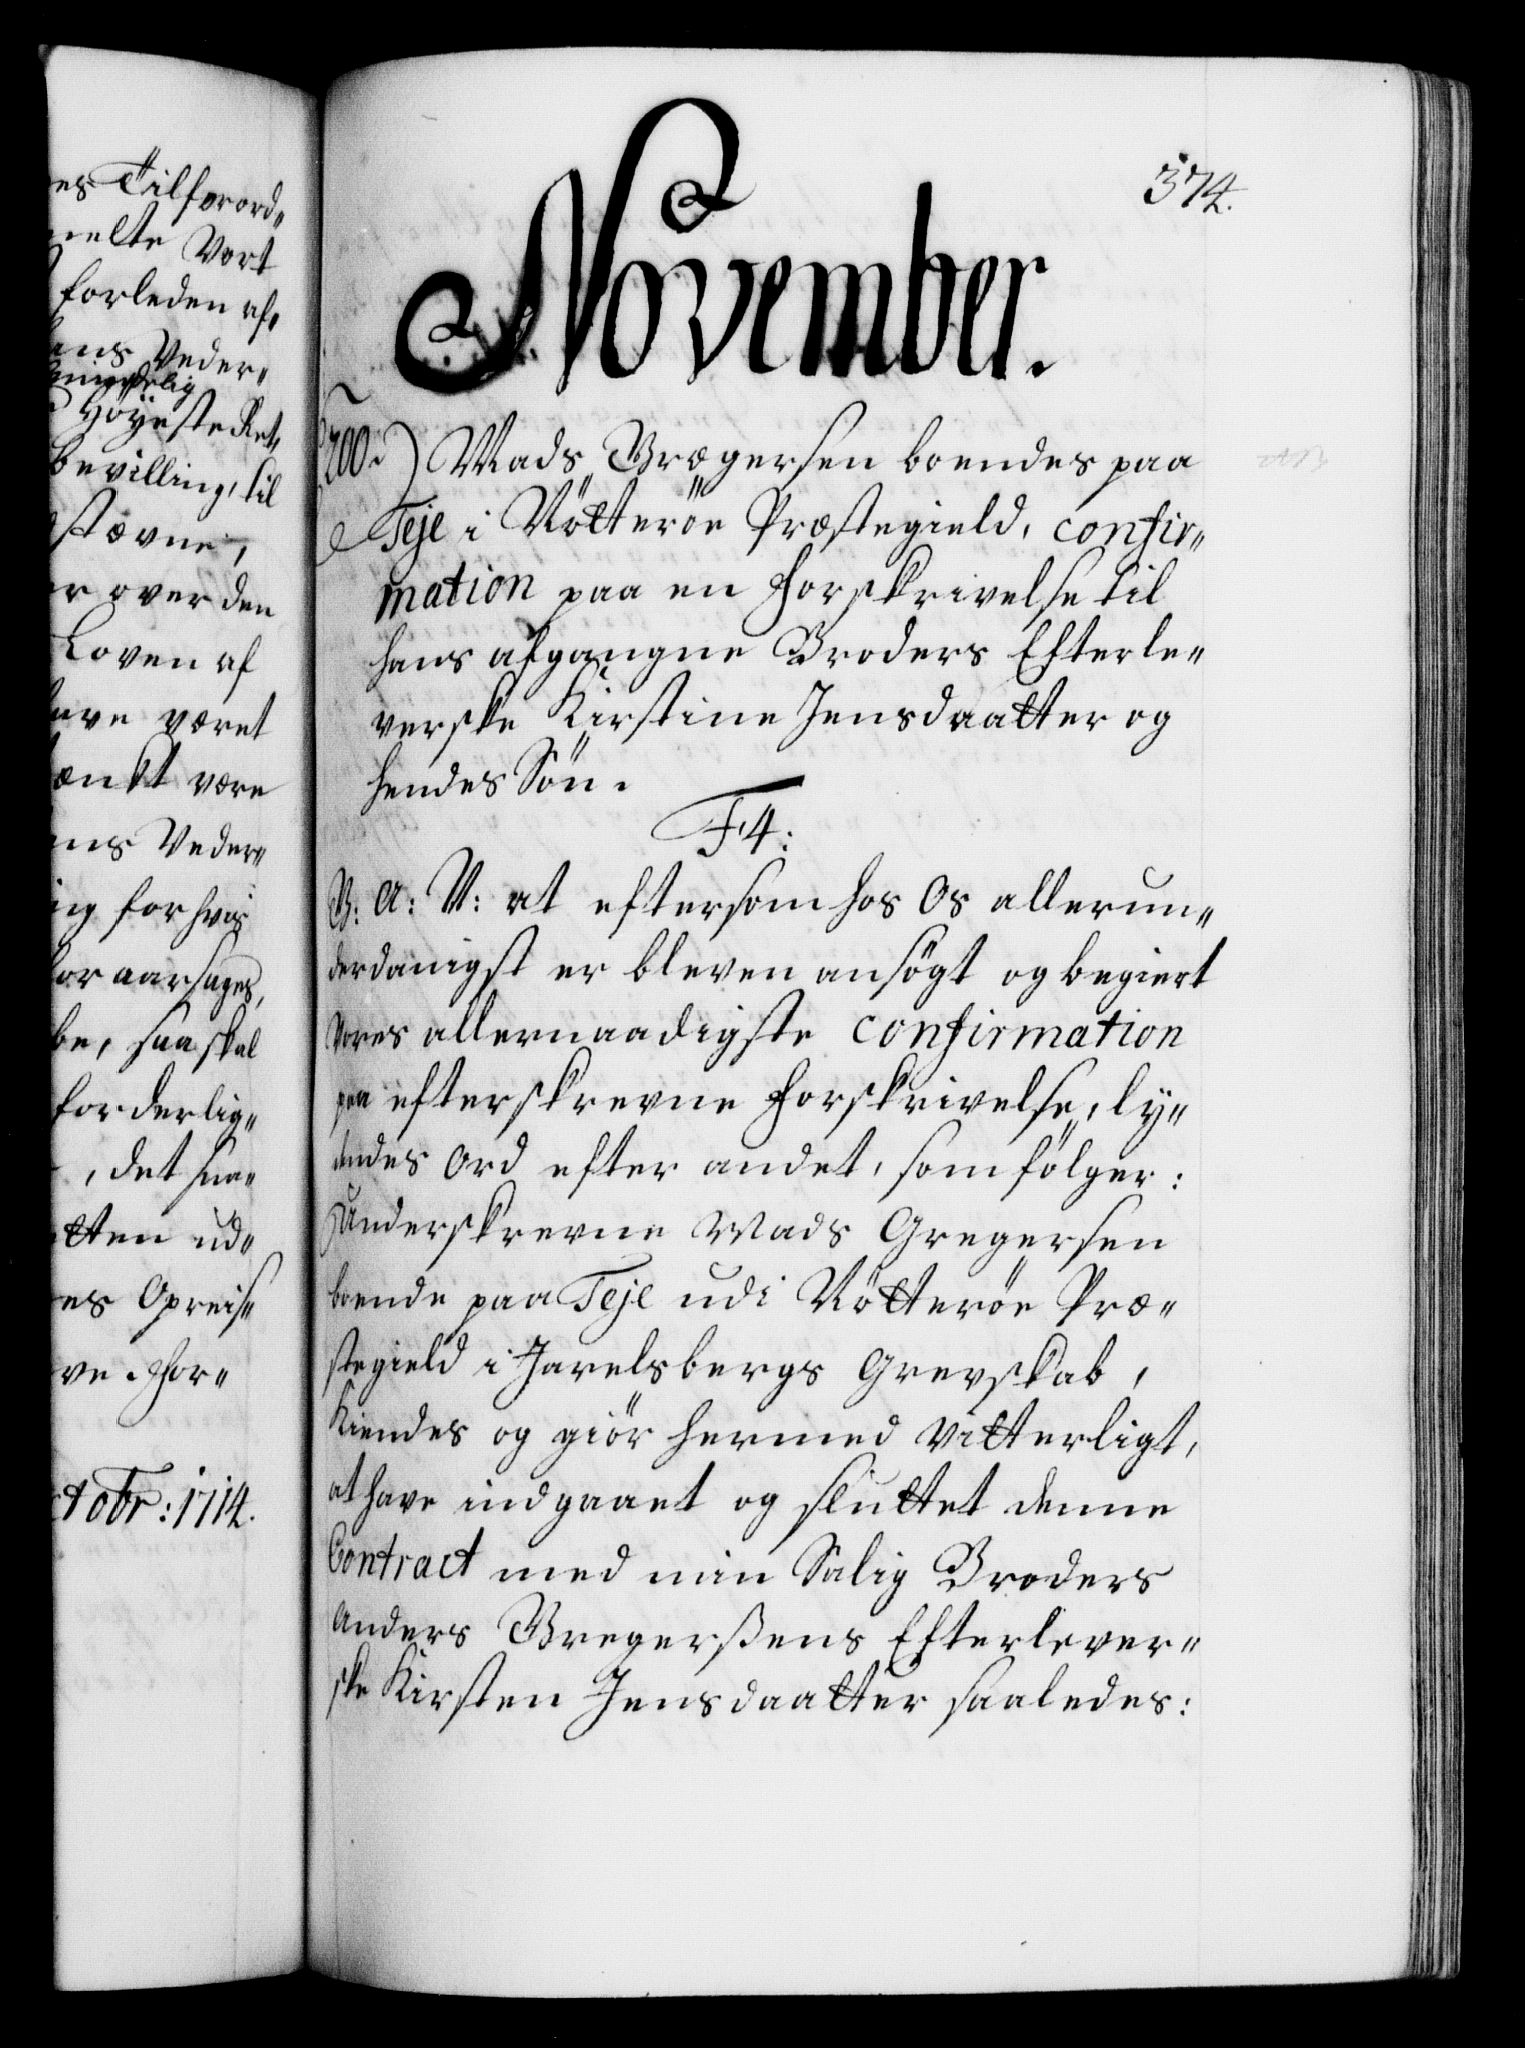 es Tilforord„
melte Vort
forleden af„
ans Veder„
Høyeste Ret,
bevilling, til
stævne,
r over den
Loven af
have været
tænkt være
ns Veder„
ing for hvis
for aarsages,
be, saa skal
forderlig„
, det saa„
etten ud„
es Opreis„
ve For„
ctobr: 1714.
374.
November.
200.) Mads Grægersen boendes paa
Teje i Nötteröe Præstegield, confir„
mation paa en Forskrivelse til
hans afgangne Broders Efterle„
verske Kirstine Jensdaatter og
hendes Sön.
F4:
V: A: V: at eftersom hos Os allerun„
derdanigst er bleven ansögt og begiert
Vores allernaadigste Confirmation
paa efterskrevne Forskrivelse, ly„
dendes Ord efter andet, som fölger:
Underskrevne Mads Gregersen
boende paa Teje udi Nötteröe Præ„
stegield i Jarelsbergs Grevskab,
Kiendes og giör hermed vitterligt,
at have indgaaet og sluttet denne
Contract med min Salig Broders
Anders Gregerßens Efterlever„
ske Kirsten Jensdaatter saaledes: